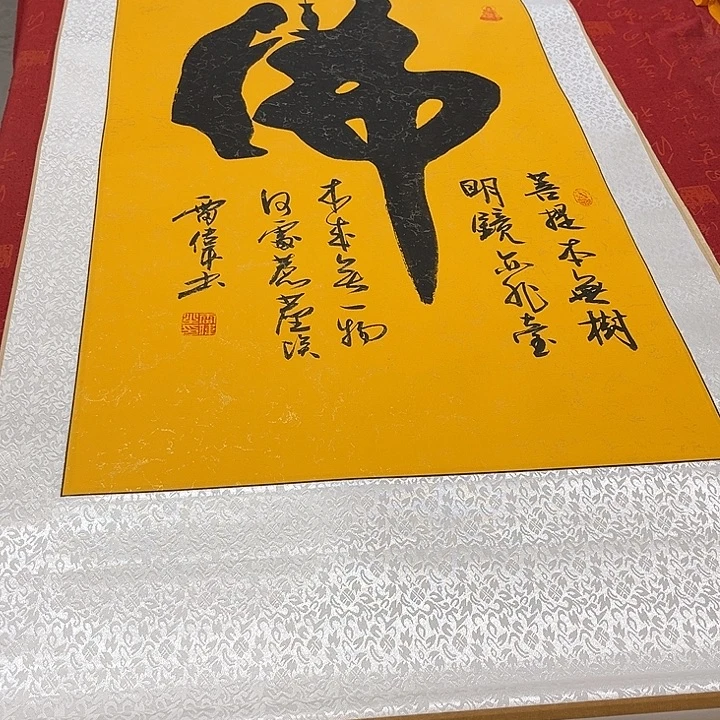 佛
菩提本無樹
明鏡亦非臺
本来無一物
何處惹塵埃
雷偉